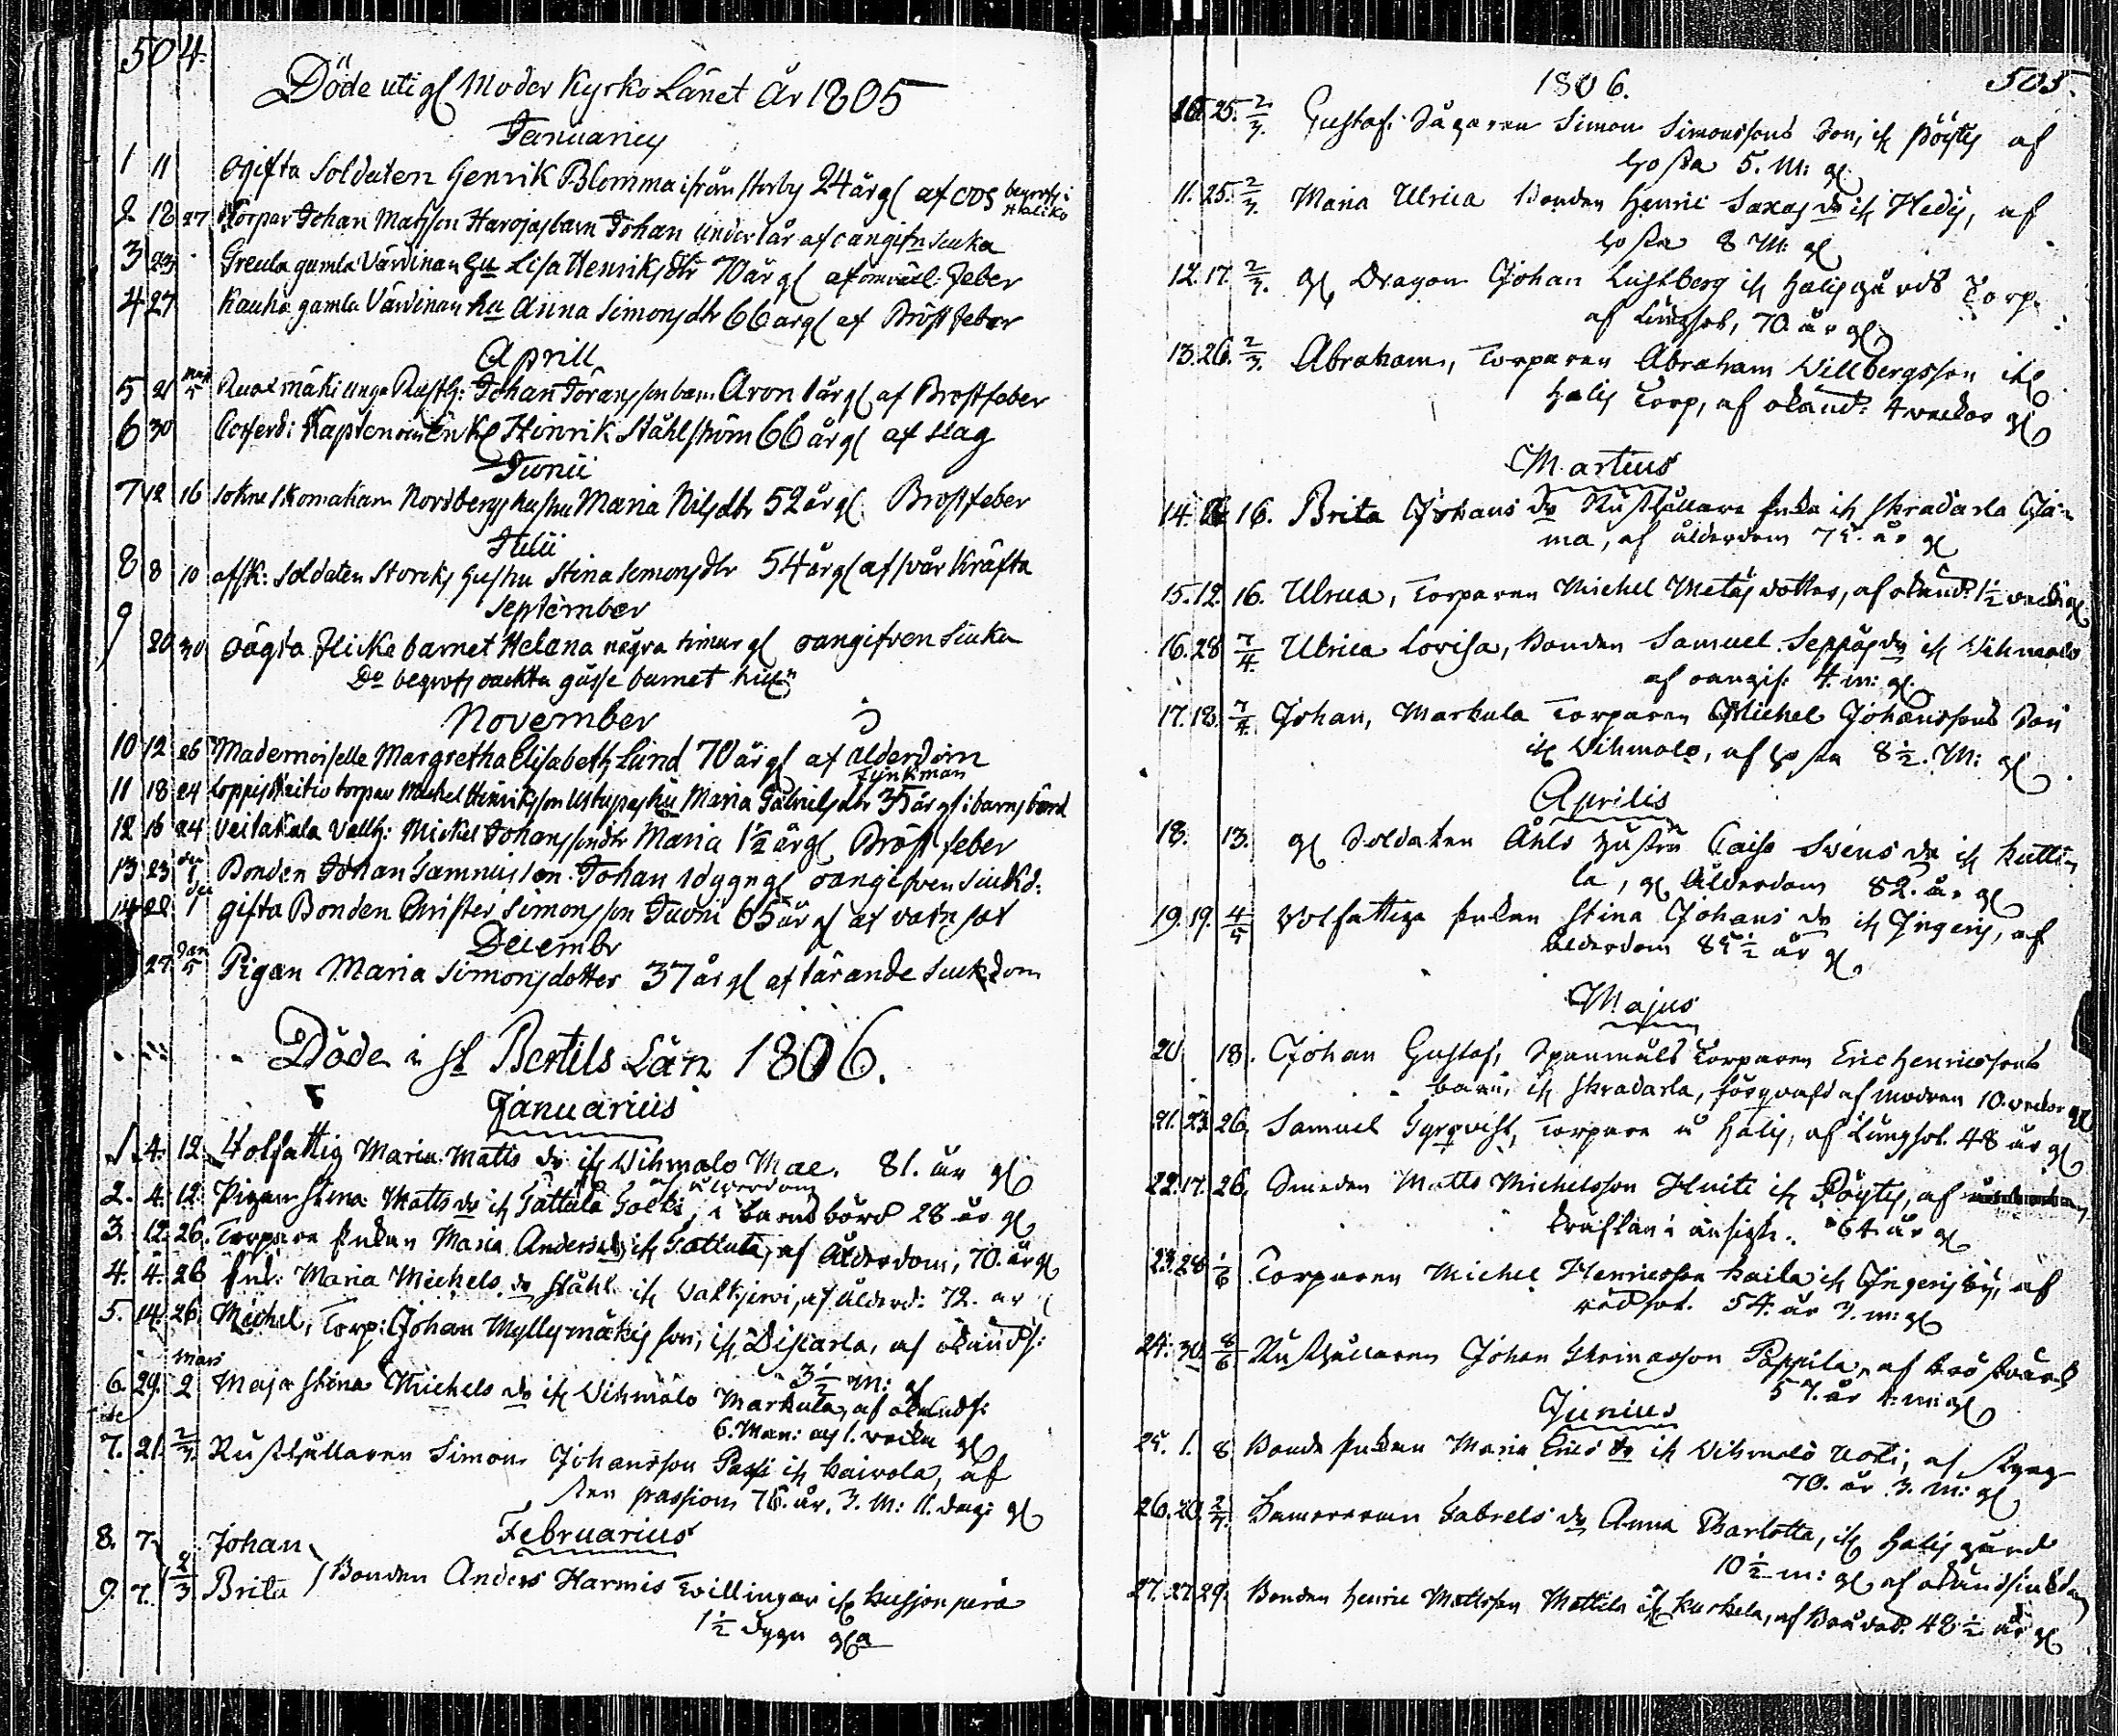 504.
Döde uti gl Moder Kyrko Länet År 1805
Januarius
1 11 ogifta Soldaten Henrik Blomma ifrån 24 år gl af begrofs i Haliko
2 12 27 Torpar Johan Matsson Harojas barn Johan under 1 år af oangifn siuka
3 23 Greula gamla Värdinan hu Lisa Henriks dtr 70 år gl af feber
4 27 Kauha gamla Värdinan hu Anna Simons dtr 66 år gl af Bröst feber
Aprill
5 21 maj 5 unga Rusth: Johan Göransson barn Aron 1 år gl af Bröstfeber
6 30 Hinrik Ståhlström 66 år gl af slag
Junii
7 12 16 Nordbergs hustru Maria Nils dtr 52 år gl Brostfeber
Julii
8 8 10 afsk: Soldaten Storcks hustru Stina Simons dtr 54 år gl af svår Kräfta
September
9 20 30 oägta flicke barnet Helena några timar gl oangifven siuka
Do begrofs oächta gåsse barnet
November
10 12 26 Mademoiselle Margretha Elisabeth Lund 70 år gl af ålderdom
11 18 24 torpar Michel Hinriksson hu Maria Gabriels dtr 35 år gl i barns börd
12 16 24 Veitakala Vallh: Mickel Johanssons dtr Maria 1½ år gl Bröst feber
13 23 Bonden Johan son Johan 1 dygn gl oangifven siukd:
14 28 1 gifta Bonden Christer Simonsson Tuomi 65 år gl af vatn sot
Decembr
27 Jan 5 Pigan Maria Simonsdotter 37 år gl af tärande siukdom
Döde i St Bertils Län 1806.
Januarius
1. 4. 12. Wolfattig Maria Matts dr ifr Wihmalo Mae. 81. år gl
af ålderdom
2. 4. 12. Pigan Stina Matts dr ifr Tattala i barns börd 28 år gl
3. 12. 26. Torpare Enkan Maria Anders dr ifr Tattula, af Ålderdom, 70. år gl
4. 4. 26 Enk: Maria Michels dr Ståhl ifr Walkjerwi, af ålderd: 72. år
5. 14. 26. Michel, Torp: Johan Myllymäkis son, ifr Discarla, af okänd s:
3½ m: gl
6. 29. Mars 2 Maja Stina Michels dr ifr Wihmalo Markula, af okänd s:
6. Mån: och 1. wecka gl
7. 21. 2/3. Rusthållaren Simon Johansson Passi ifr Kaivola, af
sten passion 76. år. 3. M: 11. dag: gl
Februarius
8. 7. Johan
9. 7. 2/3 Brita Bonden Anders Harmis Twillingar ifr
1½ dygn gla
1806.
505.
10. 25. 2/3. Gustaf. Simon Simonssons Son, ifr Pöytis af
hosta 5. M: gl
11. 25. 2/3. Maria Ulrica Bonden Henric Saxas dr ifr Hedis, af
hosta 8 M: gl
12. 17. 2/3. gl Dragon Johan Lustberg ifr Halisgårds Torp.
af Lungsot, 70. år gl
13. 26. 2/3. Abraham, Torparen Abraham Willbergsson ifr
Halis Torp, af okänd: 4 weckor gl
Martius
14. 16. Brita Johans dr Rusthållare Enka ifr Skradarla
ma, af ålderdom 75. år gl
15. 12. 16. Ulrica, Torparen Michel dotter, af okänd: 1½ weck: gl
16. 28 7/4. Ulrica Lovisa, Bonden Samuel Seppäs dr ifr Wihmalo
af oangif: 4. m: gl
17. 18. 7/4 Johan, Markula Torparen Michel Johanssons Son
ifr Wihmalo, af hosta 8½. M: gl
Aprilis
18. 13. gl Soldaten Åhls hustru Caisa Svens dr ifr Kutti
la, gl Ålderdom 82. år gl
19. 19. 4/5 Wolfattiga Enkan Stina Johans dr ifr Ingeris, af
ålderdom 85½ år gl
Majus
20 18. Johan Gustaf, Torparen Eric Henricssons
barn, ifr Skradarla, af modren 10. weckor gl
21. 23 26. Samuel Torpare å Halis, af Lungsot. 48 år gl
22. 17. 26. Smeden Matts Michelsson Huiti ifr Pöytis, af
kräftan i ansigte. 64. år gl
23. 28 1/6 Torparen Michel Henricsson Kaila ifr Ingeris by, af
rödsot. 54. år 3. m: gl
24. 30. 8/6 Rusthållaren Johan Pappila, af bröstvärk
57. år 4. m: gl
Junius
25. 1. 8 Bonde Enkan Maria Erics dr ifr Wihmalo Uoti; af styng
70. år 3. m: gl
26. 20. Gabriels dr Anna Charlotta, ifr Halis gård
10½ m: gl af okänd siukdom
27. 27. 29. Bonden Henric Mattsson Mattila ifr Kurkela, af 48½ år gl